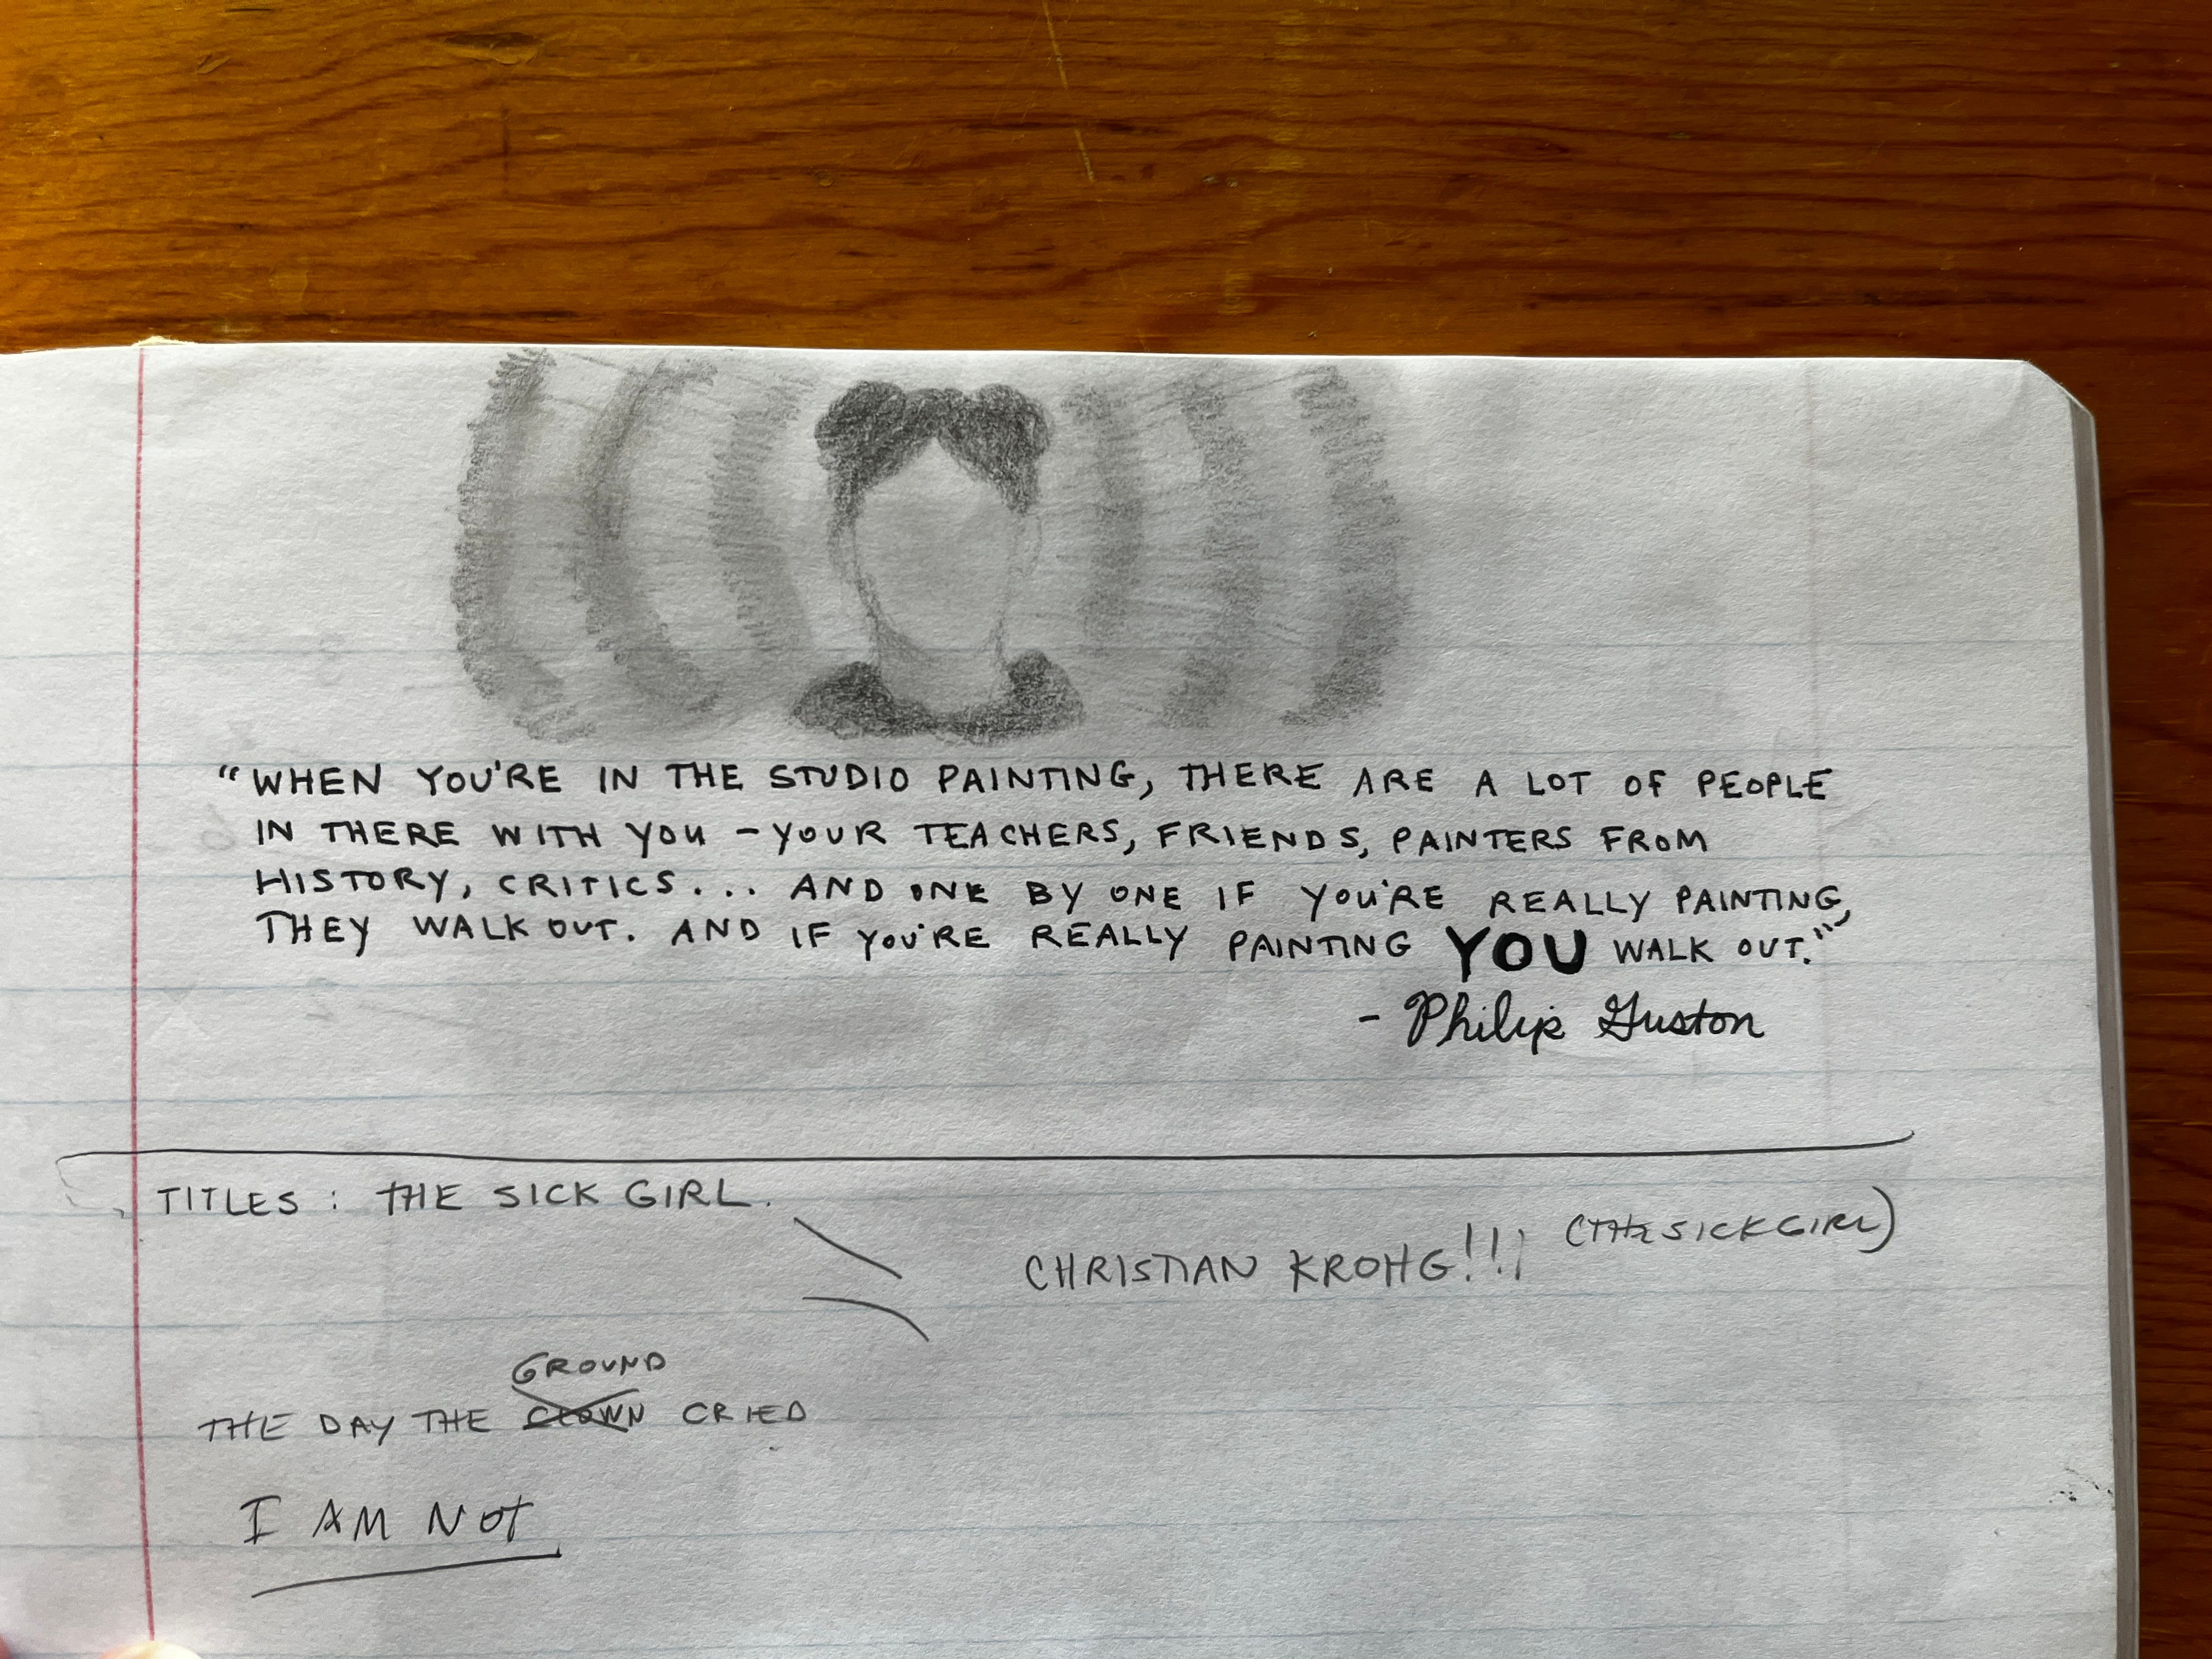 "WHEN YOU'RE IN THE STUDIO PAINTING, THERE ARE A LOT OF PEOPLE
IN THERE WITH YOU - YOUR TEACHERS, FRIENDS, PAINTERS FROM
HISTORY, CRITICS... AND ONE BY ONE IF YOU'RE REALLY PAINTING,
THEY WALK OUT. AND IF YOU'RE REALLY PAINTING YOU WALK OUT."
- Philip Guston
TITLES: THE SICK GIRL.
CHRISTIAN KROHG!!! (THE SICK GIRL)
GROUND
THE DAY THE CLOWN CRIED
I AM NOT